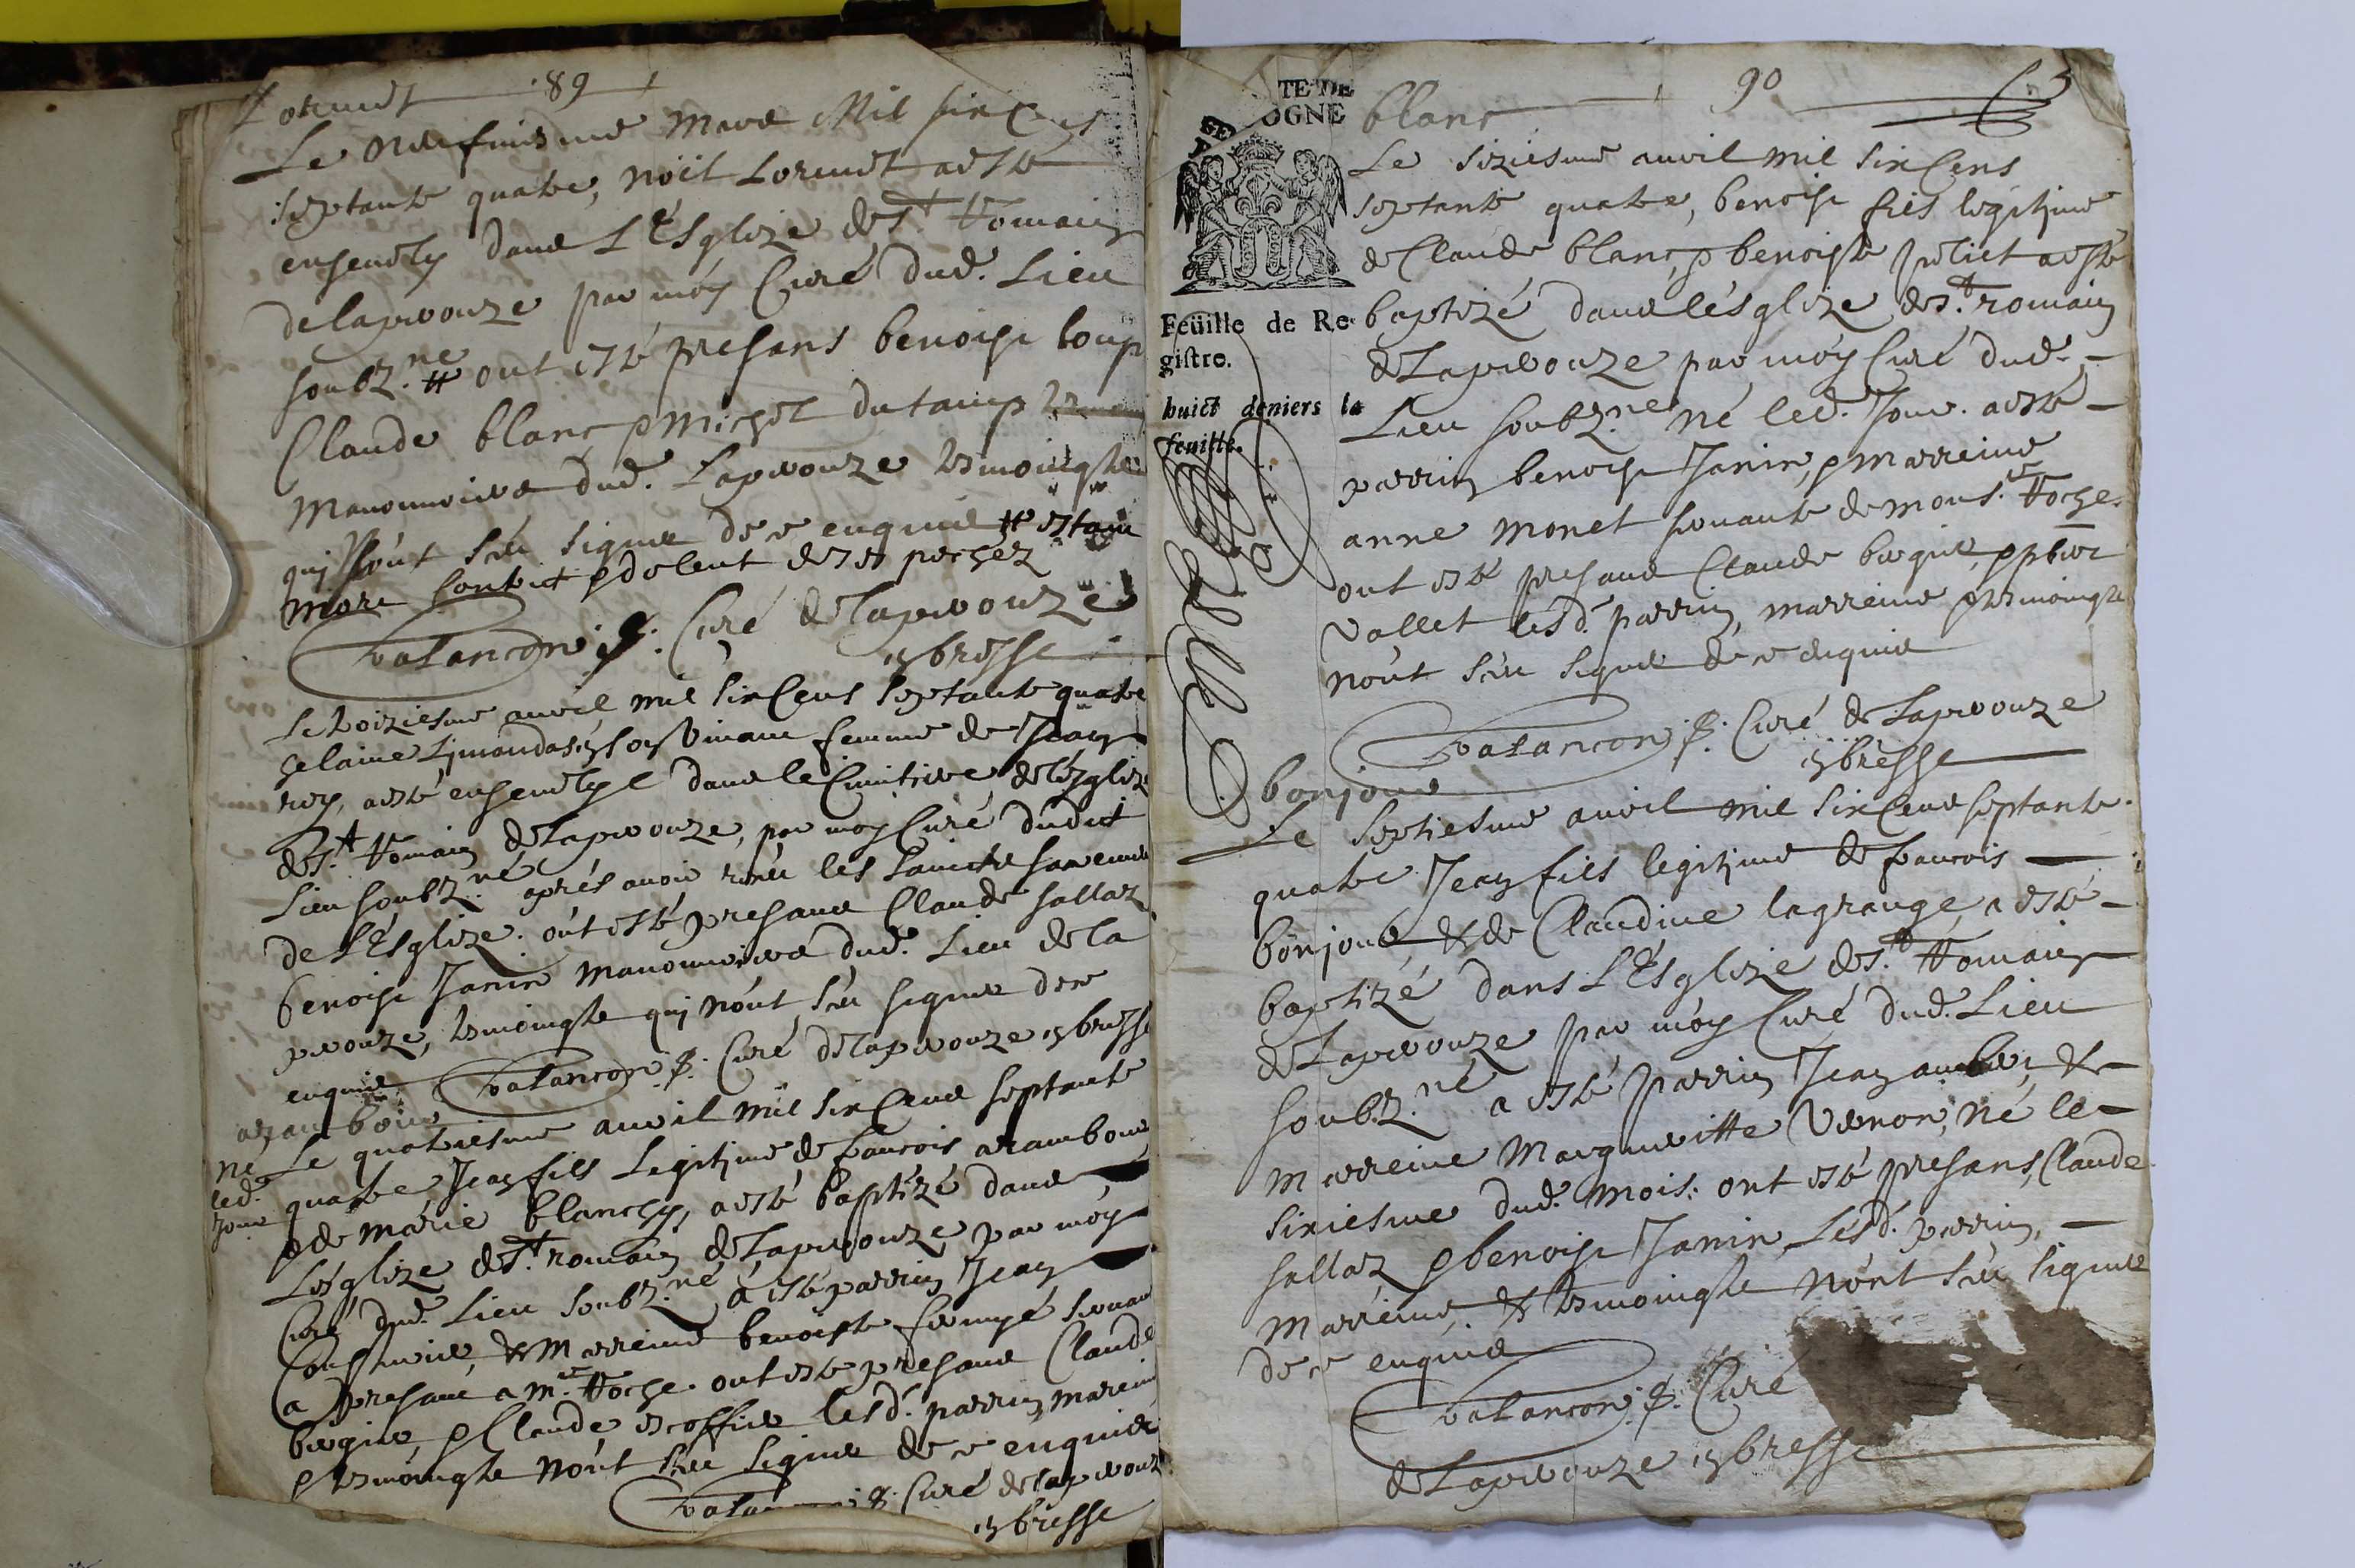 Loruiset 89
Le Neufuiesme Mars Mil six Cens
septante quatre, Noël Loruiset a esté
enseuely dans L'Esglize de St Romain
de laperouze par moy Curé dud. Lieu
soubz.né # ont esté presans benoist loup
Claude blanc & Michel dutamp
Manouuriers dud. Laperouze tesmoingts
qui n'ont sceu signer de ce enquis # estant
mort contrit & dolent de ses pechez
Valancon p. Curé de Laperouze
en bresse
Le troiziesme auril mil six Cens septante quatre
helaine en son viuant femme de Jean
rey, a esté enseuelye dans le Cimitiere de lesglize
de St Romain de Laperouze, par moy Curé dudict
Lieu soubz.né aprés auoir receu les saincts sacremens
de L'Esglize. ont esté presans Claude sallaz
benoist Janin manouuriers dud. Lieu de la
perouze, tesmoingts qui n'ont sceu signer de ce
enquis. Valancon p. Curé de Laperouze en bresse
arambour
Le quatriesme auril mil six Cens septante
né
led.
Jour
quatre Jean fils Legitime de francois arambour
& de marie blanchy, a esté baptizé dans
L'esglize de St romain de Laperouze par moy
Curé dud. Lieu soubz.né a esté parrin Jean
& marreine benoiste seruante
a presant a mr. Roche. ont esté presans Claude
bergier, & Claude escoffier lesd. parrin, mareine
& tesmoingts n'ont sceu signer de ce enquier
Valancon p. Curé de laperouze
en bresse
blanc 90
TE DE
OGNE
Feüille de Re-
gistre.
huict deniers la
feuille.
Le siziesme auril mil six Cens
septante quatre, benoist fils legitime
de Claude blanc, & benoiste Juliet a esté
baptizé dans lésglize de St. romain
de Laperouze par moy Curé dud.
Lieu soubz.né né led. Jour. a esté
parrin benoist Janin, & marreine
anne monet seruante de mons.r Roche.
ont esté presans Claude bergier, &
Vallet lesd. parrin, marreine & tesmoingts
n'ont sceu signer de ce enquis
Valancon p. Curé de Laperouze
en bresse
bonjour
Le septiesme auril mil six Cens septante
quatre Jean fils legitime de francois
bonjour, & de Claudine lagrange, a esté
baptizé dans L'Esglize de St. Romain
de Laperouze par moy Curé dud. Lieu
soubz.né a esté parrin Jean &
marreine Margueritte Vernon, né le
sixiesme dud. mois. ont esté presans, Claude
sallaz & benoist Janin Lesd. parrin,
Marreine, & tesmoingts n'ont sceu signer
de ce enquis
Valancon p. Curé
de Laperouze en bresse